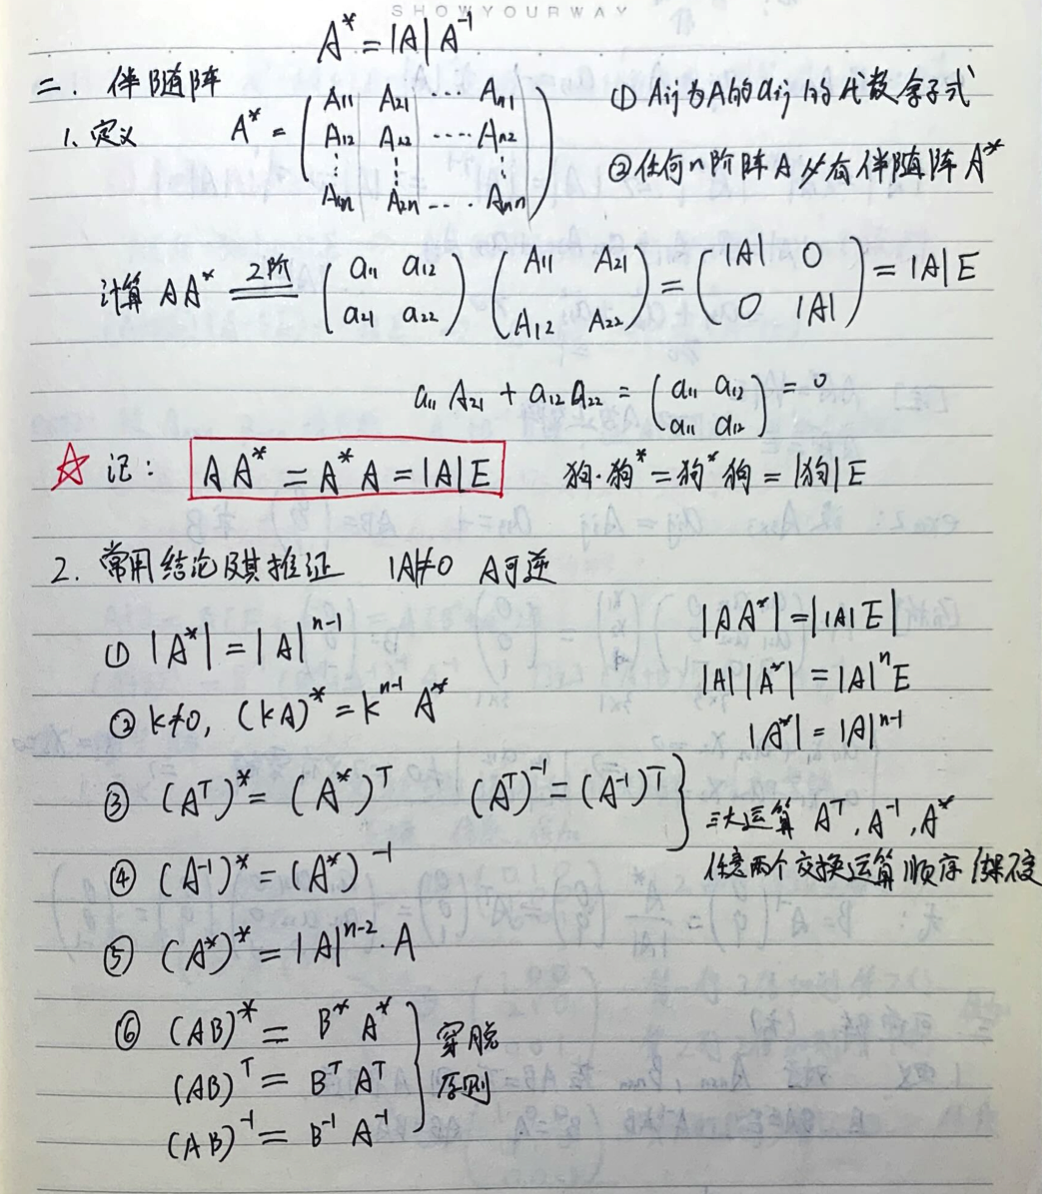 SHOWYOURWAY
A* = |A| A⁻¹
二. 伴随阵
1. 定义 A* = ( A₁₁ A₂₁ ⋯ Aₙ₁ ; A₁₂ A₂₂ ⋯⋯ Aₙ₂ ; ⋮ ⋮ ⋮ ; A₁ₙ A₂ₙ ⋯⋯ Aₙₙ )
① Aij为A的aij的代数余子式
②任何n阶阵A必有伴随阵A*
计算 AA* 2阶 = ( a₁₁ a₁₂ ; a₂₁ a₂₂ ) ( A₁₁ A₂₁ ; A₁₂ A₂₂ ) = ( |A| 0 ; 0 |A| ) = |A|E
a₁₁A₂₁ + a₁₂a₂₂ = ( a₁₁ a₁₂ ; a₁₁ a₁₂ ) = 0
☆ 记: AA* = A*A = |A|E 狗·狗* = 狗*狗 = |狗|E
2. 常用结论及其推证 |A|≠0 A可逆
① |A*| = |A|ⁿ⁻¹
|AA*| = ||A|E|
|A||A*| = |A|ⁿE
|A*| = |A|ⁿ⁻¹
② k≠0, (kA)* = kⁿ⁻¹A*
③ (Aᵀ)* = (A*)ᵀ (Aᵀ)⁻¹ = (A⁻¹)ᵀ
④ (A⁻¹)* = (A*)⁻¹
三大运算 Aᵀ, A⁻¹, A*
任意两个交换运算顺序结果不变
⑤ (A*)* = |A|ⁿ⁻²·A
⑥ (AB)* = B*A*
(AB)ᵀ = BᵀAᵀ
(AB)⁻¹ = B⁻¹A⁻¹
穿脱
原则